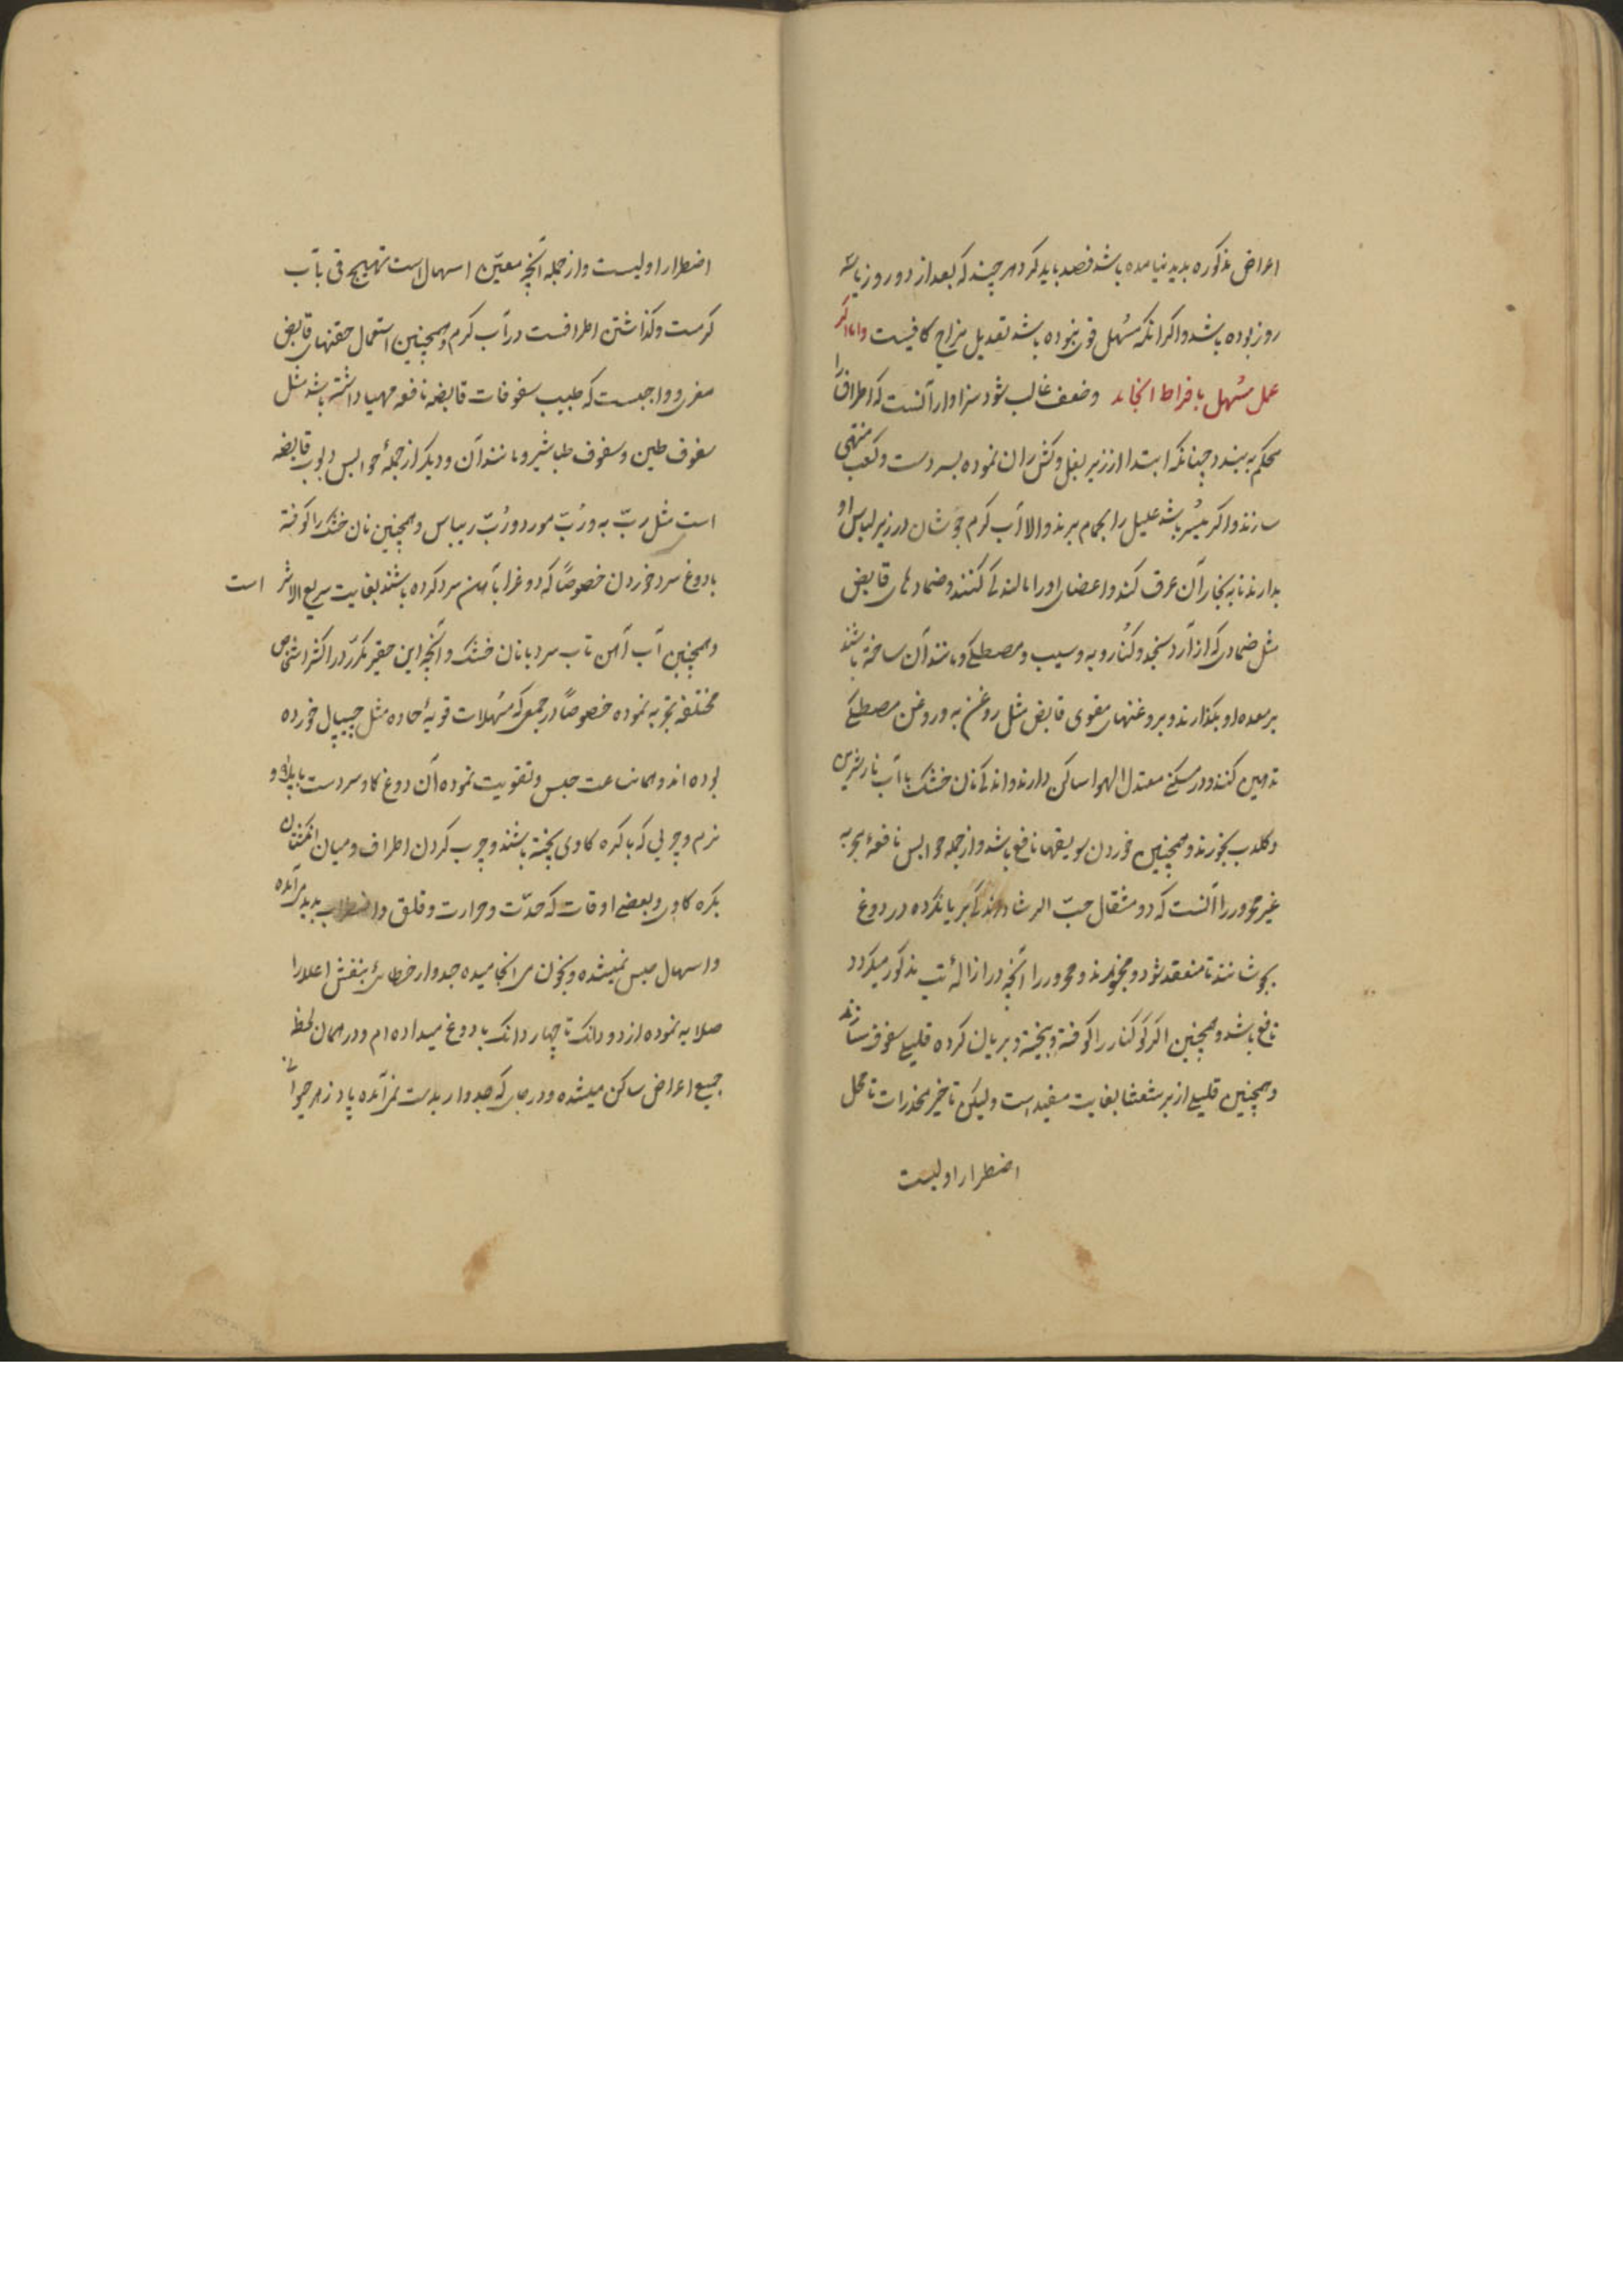 اعراض مذکوره پدید نیامده باشد فصد باید کرد هر چند که بعد از دو روز یا سه
روز بوده باشد و اکر انکه مسهل قوی نبوده باشد تعدیل مزاج کافیست و اما اکر
عمل مسهل بافراط انجامد وضعف غالب شود سزاوار آنست که اطراف را
محکم به بندد چنانکه ابتدا از زیر بغل وکش ران نموده بسر دست وکعب منتهی
سازند واکر میسر باشد علیل را بحمام برند والا آب کرم جوشان در زیر لباس او
بدارند تا به بخار آن عرق کند واعضای اورا مالند کی کنند وضمادهای قابض
مثل ضمادی که از آرد سنجد وکنار وبه وسیب ومصطکی ومانند آن ساخته باشند
بر معده او بکذارند وبروغنهای مقوی قابض مثل روغن به وروغن مصطکی
تدهین کنند ودر مسکن معتدل الهوا ساکن دارند واندکی نان خشک با آب نار شیرین
وکلاب بخورند وهمچنین خوردن سویقها نافع باشد واز جمله حوابس نافعهٔ مجربه
غیر محرور را آنست که دو مثقال حب الرشاد اندکی بریانکرده در دوغ
بجوشانند تا منعقد شود و بخورند و محرور را آنچه در ازالهٔ تب مذکور میکردد
نافع باشد وهمچنین اکر کوکنار را کوفته وبیخته وبریان کرده قلیلی سفوف سازند
وهمچنین قلیلی از برشعثا بغایت مفید است ولیکن تاخیر مخدرات تا محل
اضطرار اولیست
اضطرار اولیست واز جمله آنچه معین اسهال است تهییج قی بآب
کرمست وکذاشتن اطرافست در آب کرم وهمچنین استعمال حقنهای قابض
مغری وواجبست که طبیب سفوفات قابضه نافعه مهیا داشته باشد مثل
سفوف طین وسفوف طباشیر ومانند آن ودیکر از جملهٔ حوابس ربوب قابضه
است مثل رب به ورب مورد ورب ریباس وهمچنین نان خشک را کوفته
با دوغ سرد خوردن خصوصاً که دوغ را بآهن سرد کرده باشند بغایت سریع الاثر است
وهمچنین آب آهن تاب سرد با نان خشک وآنچه این حقیر مکرر در اکثر اشخاص
مختلفه تجربه نموده خصوصاً در جمعی که مسهلات قویهٔ حاده مثل جیپال خورده
بوده اند وهمان ساعت حبس وتقویت نموده آن دوغ کاو سردست با پلاو
نرم وچربی که با کره کاوی پخته باشند وچرب کردن اطراف ومیان انکشتان
بکره کاوی وبعضی اوقات که حدت وحرارت وقلق واضطراب پدید می آمده
واسهال حبس نمیشده وبخون می انجامیده جدوار خطائی بنفش اعلا را
صلایه نموده از دو دانک تا چهار دانک با دوغ میداده ام ودر همان لحظه
جمیع اعراض ساکن میشده ودر جای که جدوار بدست نمی آمده پادزهر حیوانی